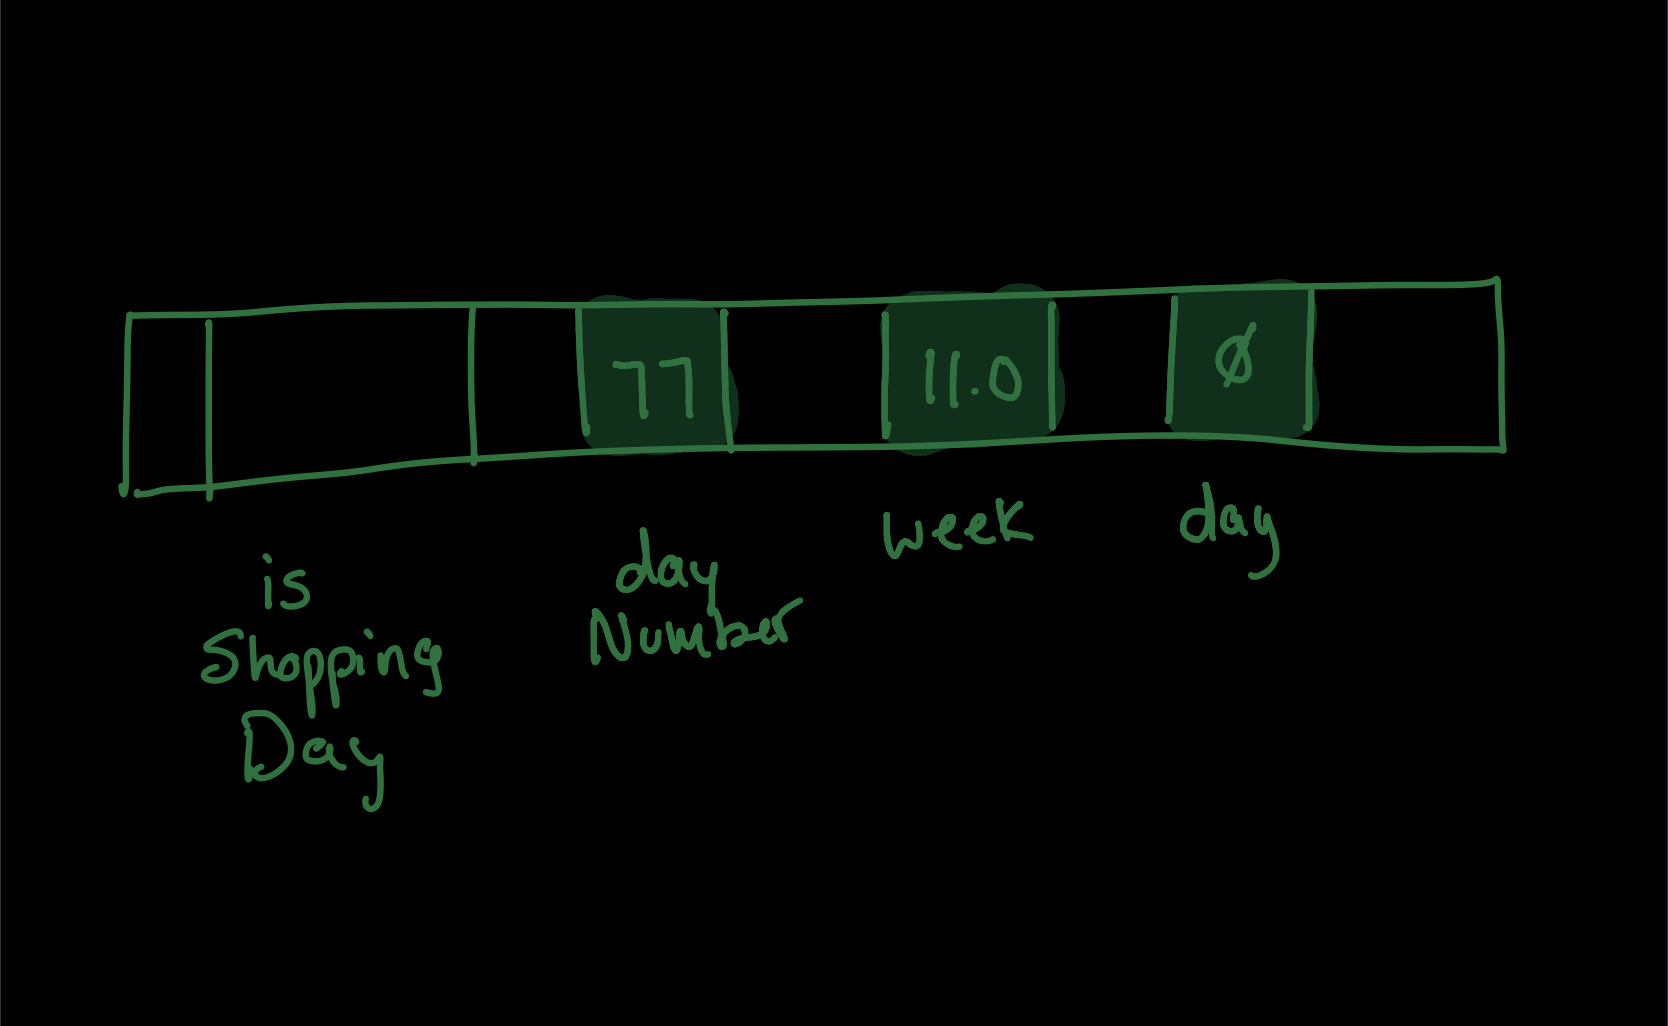 77 11.0 Ø
is
Shopping
Day
day
Number
week
day